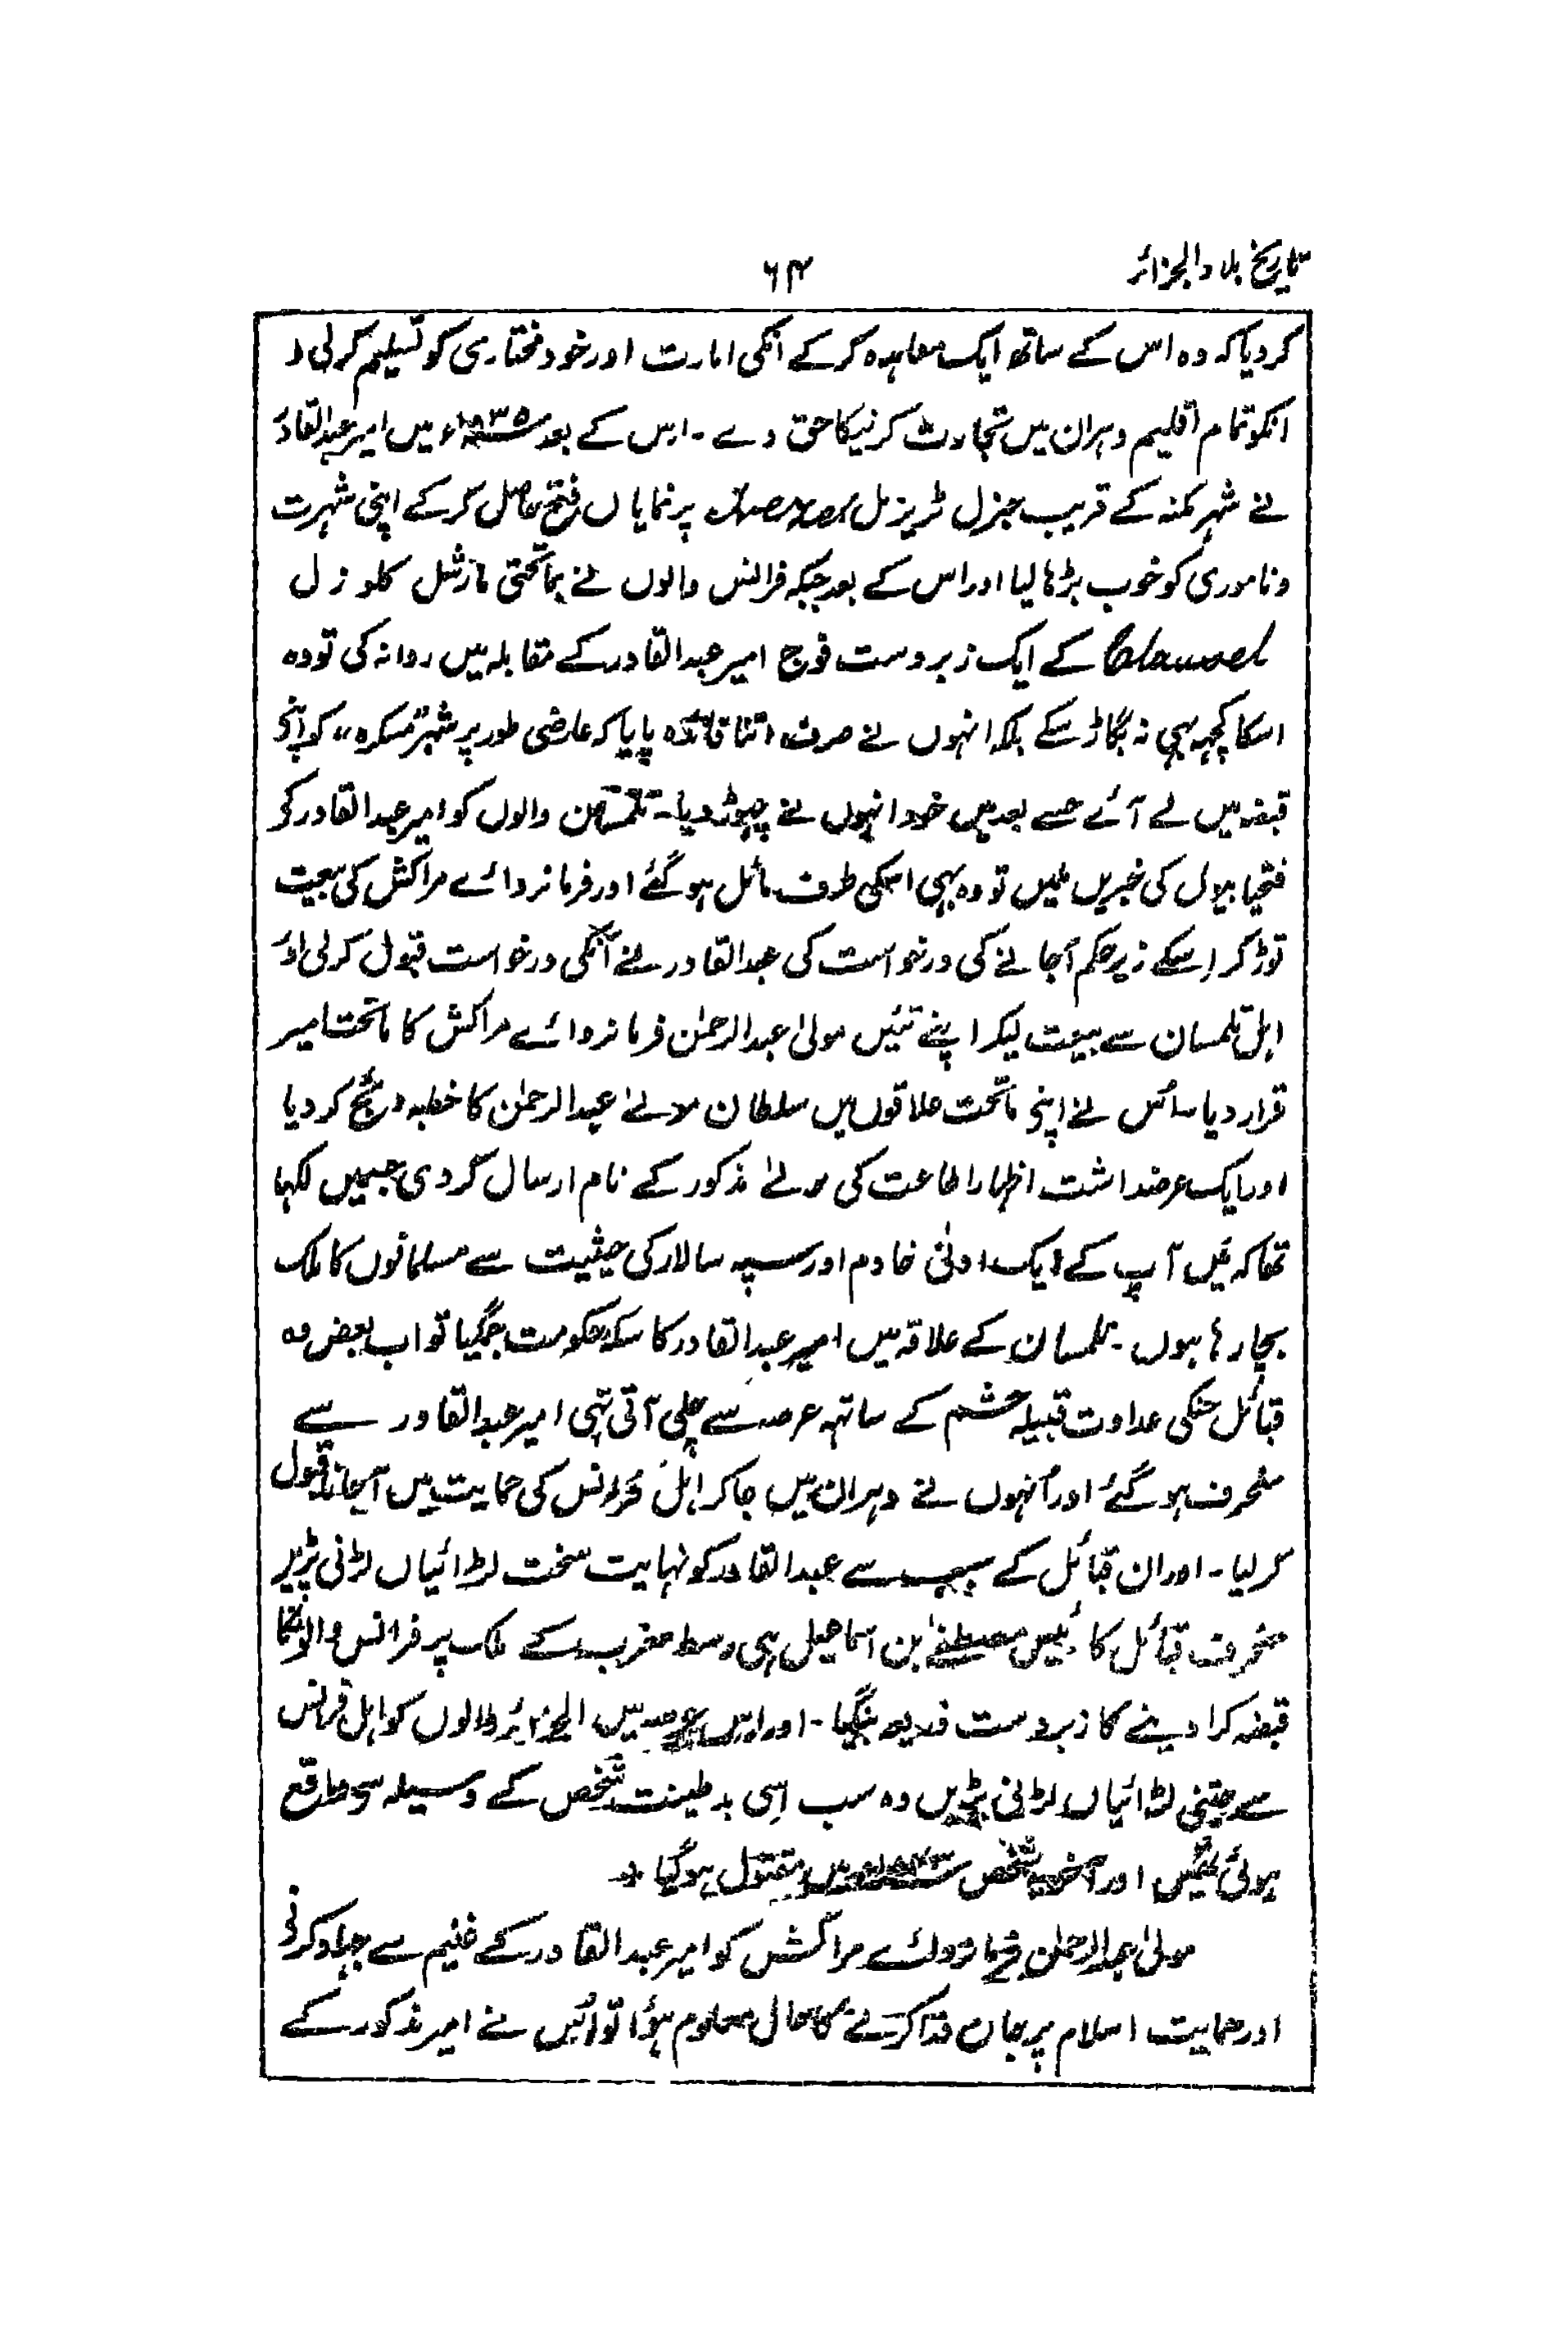 تاریخ بلاد الجزائر
۶۴
کردیا کہ وہ اس کے ساتھ ایک معاہدہ کرکے انکی امارت اور خود مختاری کو تسلیم کرلی
انکو تمام اقلیم وہران میں تجارت کرنیکا حق دے ۔ اس کے بعد ۱۸۳۵ء میں امیر عبدالقادر
نے شہر کمنہ کے قریب جنرل ٹریزل پر نمایاں فتح حاصل کرکے اپنی شہرت
و ناموری کو خوب بڑھا لیا اور اس کے بعد جبکہ فرانس والوں نے بماتحتی مارشل کلوزل
Clausel کے ایک زبردست فوج امیر عبدالقادر کے مقابلہ میں روانہ کی تو وہ
اسکا کچہہ بہی نہ بگاڑ سکے بلکہ انہوں نے صرف اتنا فائدہ پایا کہ عارضی طور پر شہر "مسکرہ" کو اپنے
قبضہ میں لے آئے جسے بعد میں خود انہوں نے چہوڑ دیا ۔ تلمسان والوں کو امیر عبدالقادر کی
فتحیابیوں کی خبریں ملیں تو وہ بہی اسکی طرف مائل ہوگئے اور فرمانروائے مراکش کی بیعت
توڑ کر اسکے زیر حکم آجانے کی درخواست کی عبدالقادر نے انکی درخواست قبول کرلی اور
اہل تلمسان سے بیعت لیکر اپنے تئیں مولیٰ عبدالرحمٰن فرمانروائے مراکش کا ماتحت امیر
قرار دیا ۔ اُس نے اپنی ماتحت علاقوں میں سلطان مولےٰ عبدالرحمٰن کا خطبہ رائج کردیا
اور ایک عرضداشت اظہار اطاعت کی مولےٰ مذکور کے نام ارسال کردی جسمیں لکہا
تھا کہ میں آپ کے ایک ادنٰی خادم اور سپہ سالار کی حیثیت سے مسلمانوں کا ملک
بچا رہا ہوں ۔ تلمسان کے علاقہ میں امیر عبدالقادر کا سکہ حکومت جمگیا تو اب بعض وہ
قبائل جنکی عداوت قبیلہ حشم کے ساتہہ عرصہ سے چلی آتی تہی امیر عبدالقادر سے
منحرف ہوگئے اور اُنہوں نے وہران میں جاکر اہل فرانس کی حمایت میں آجانا قبول
کرلیا ۔ اور ان قبائل کے سبب سے عبدالقادر کو نہایت سخت لڑائیاں لڑنی پڑیں
منحرف قبائل کا رئیس مصطفےٰ بن اسماعیل ہی وسط مغرب کے ملک پر فرانس والونکا
قبضہ کرا دینے کا زبردست ذریعہ بنگیا ۔ اور اس عرصہ میں الجزائر والوں کو اہل فرانس
سے جتنی لڑائیاں لڑنی پڑیں وہ سب اسی بدطینت شخص کے وسیلہ سے واقع
ہوئی تہیں اور آخر یہ شخص ۱۸۴۳ء میں مقتول ہوگیا ؞
مولیٰ عبدالرحمٰن فرمانروائے مراکش کو امیر عبدالقادر کے غنیم سے جہاد کرنی
اور حمایت اسلام پر جان فدا کرنے کا حال معلوم ہؤا تو اُس نے امیر مذکور کے